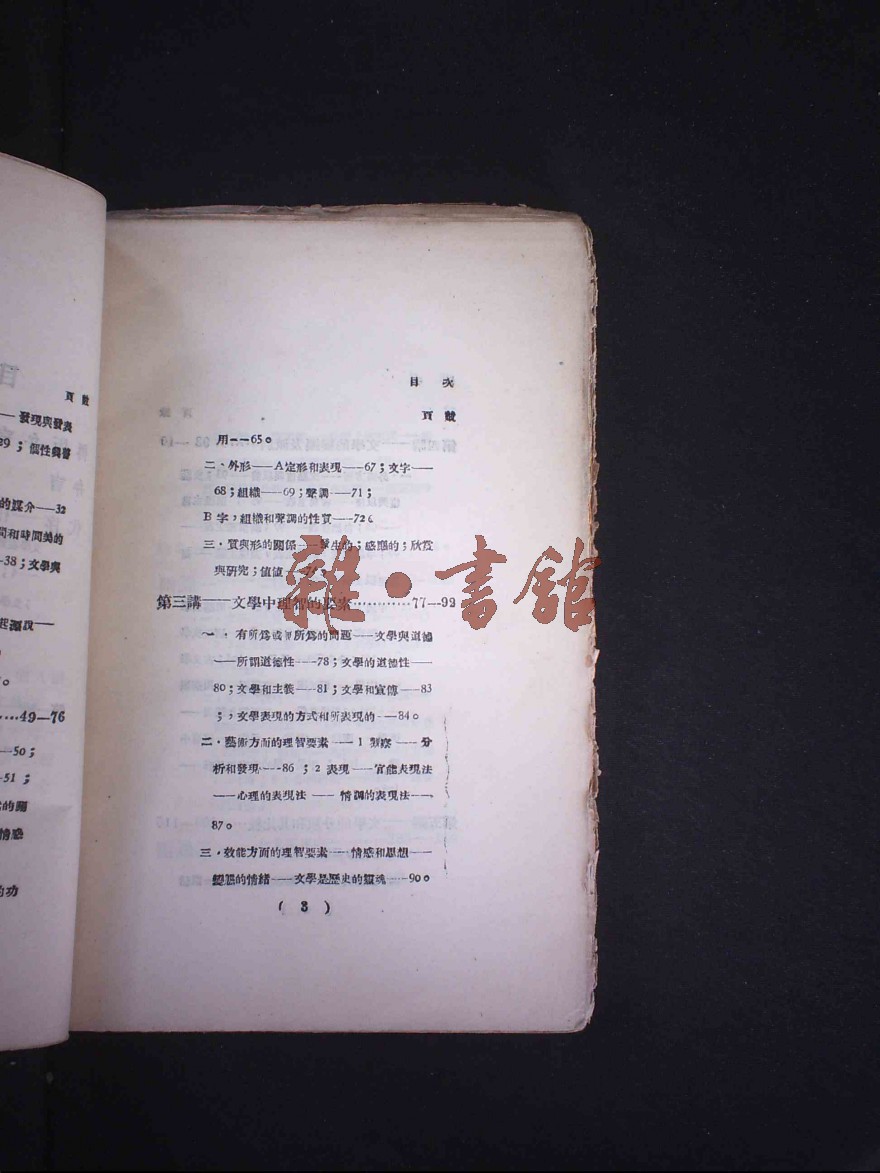 頁數
—發現與發表
39；個性與普
的媒介—32
間和時間美的
—38；文學與
起源說—
。
…49—76
—50；
—51；
情感
的功
目 次
頁 數
用——65。
二・外形——A定形和表現——67；文字——
68；組織——69；聲調——71；
B字，組織和聲調的性質——72。
三・質與形的關係——生的；感應的；欣賞
與研究；價值——
雜・書館
第三講——文學中理智的要素…………77—92
一・有所為或 所為的問題——文學與道德
——所謂道德性——78；文學的道德性——
80；文學和主義——81；文學和宣傳——83
；，文學表現的方式和所表現的——84。
二・藝術方面的理智要素——1 觀察——分
析和發現——86；2 表現——官能表現法
——心理的表現法——情調的表現法——
87。
三・效能方面的理智要素——情感和思想——
變態的情緒——文學是歷史的靈魂——90。
( 3 )